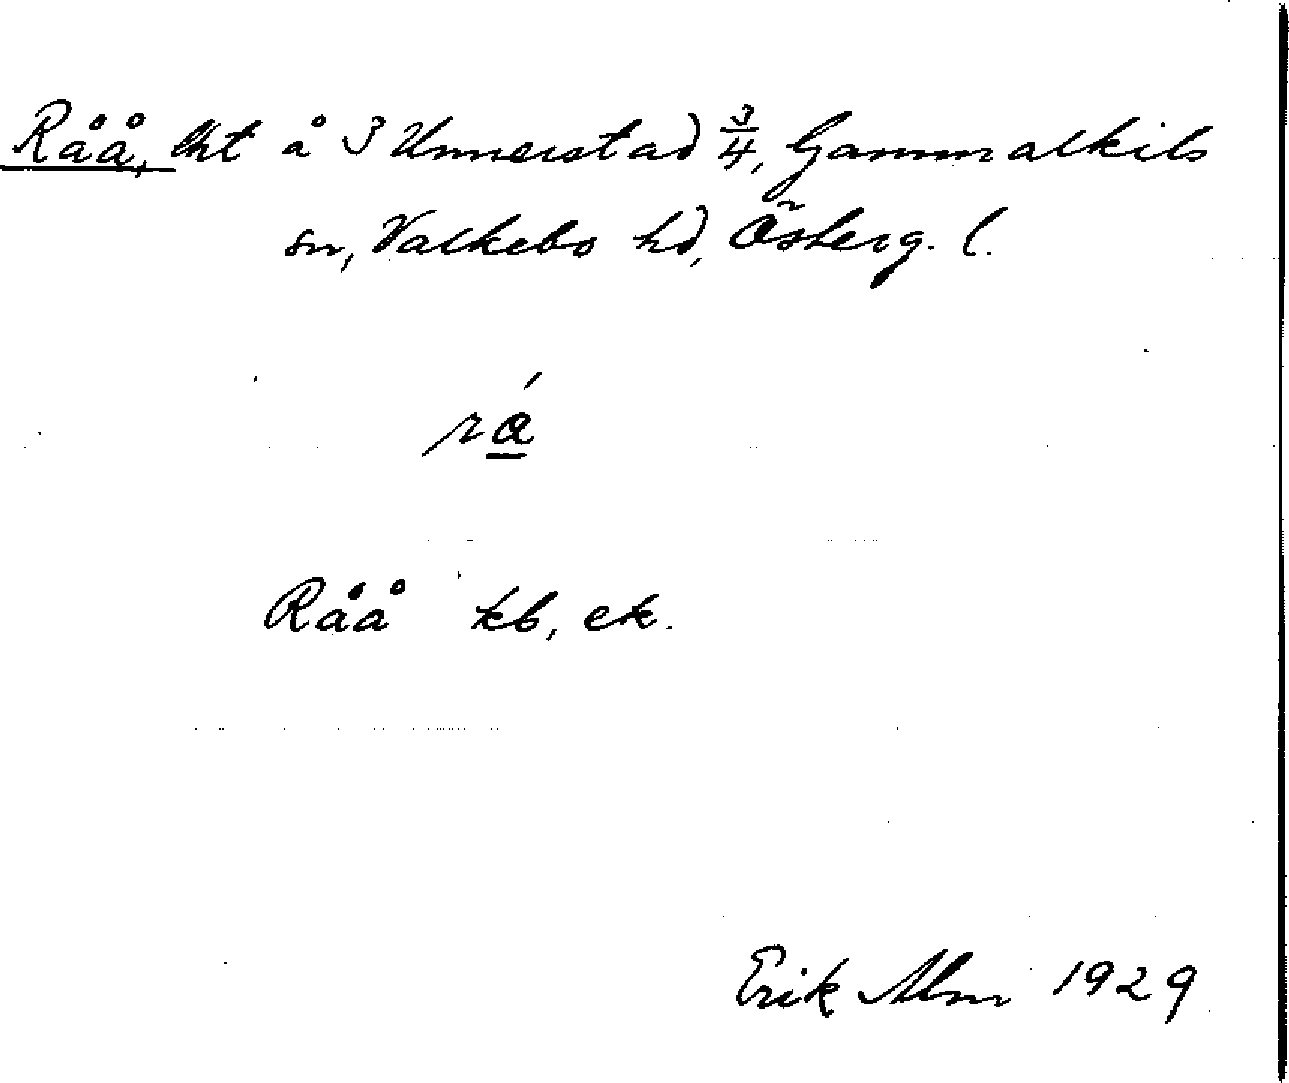 Råå, lht å 3 Unnerstad 3/4, Gammalkils
sn, Valkebo hd, Österg. l.
rá̲
Råå kb, ek.
Erik Alm 1929